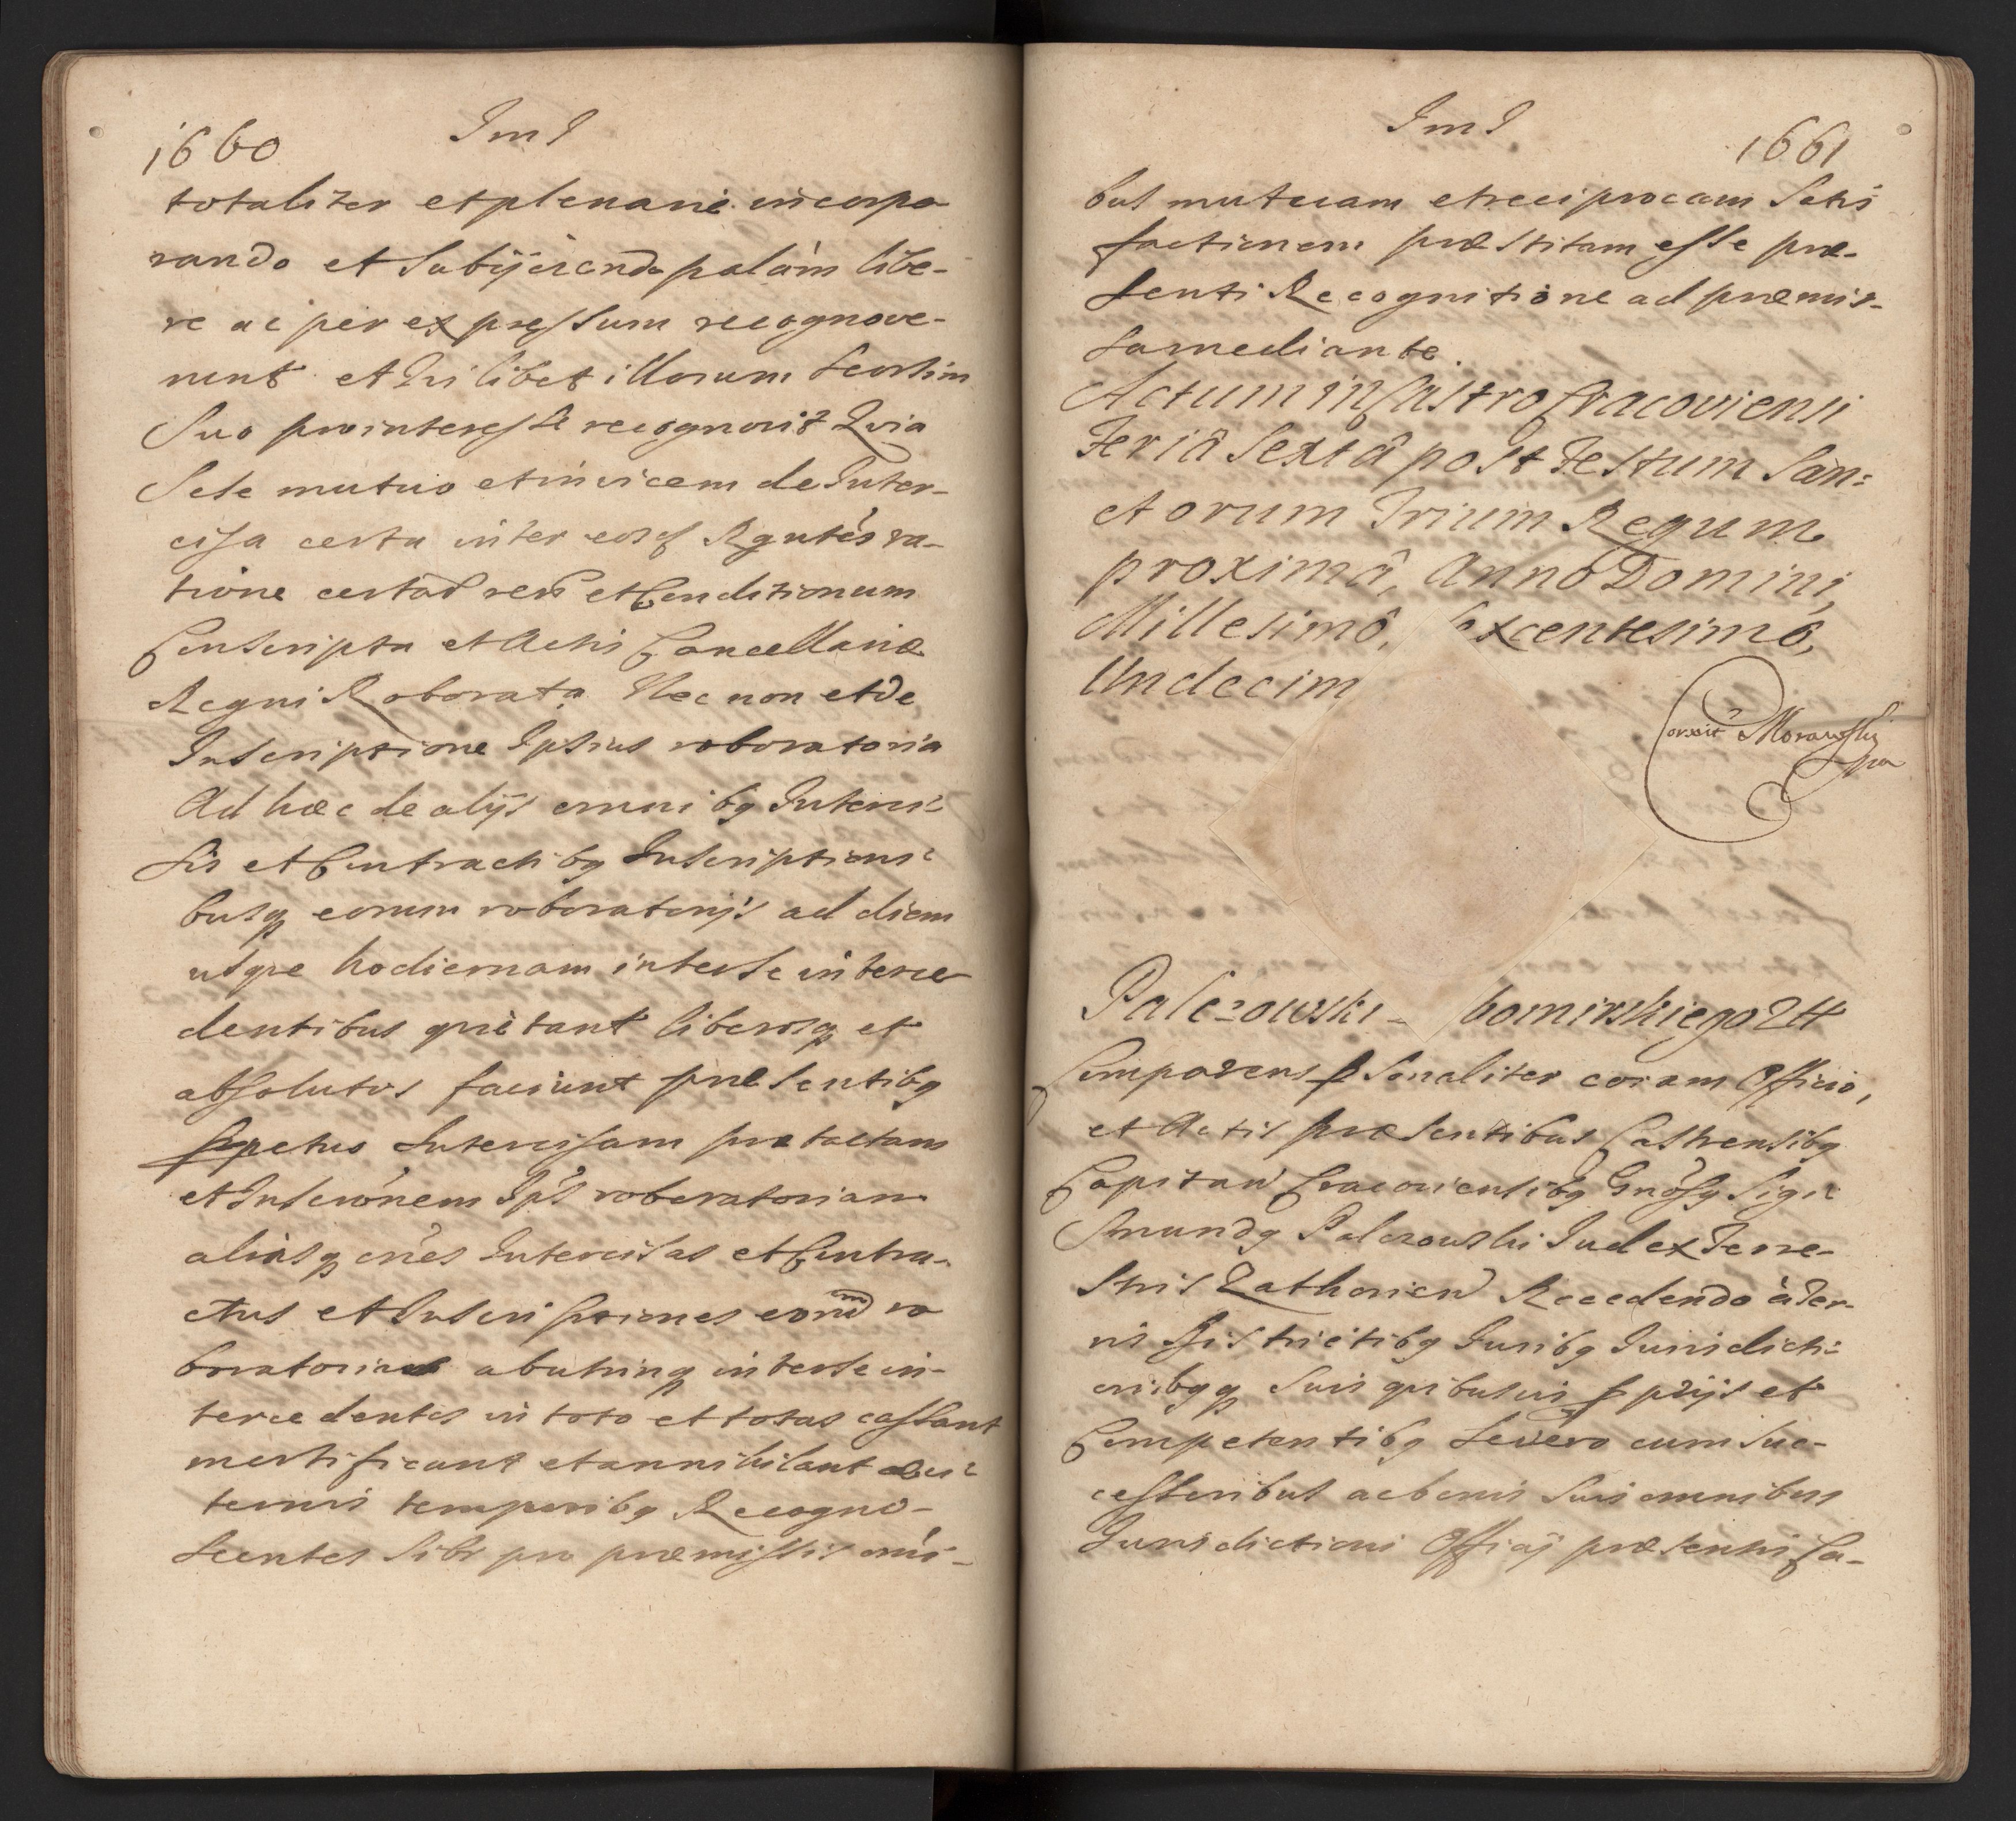 1660
Im I
totaliter et plenarie incorpo-
rando et Subijciendo palàm libe-
re ac per expressum recognove-
runt et Quilibet illorum Seorsim
Suo pro interesse recognovit Quia
Sese mutuo et invicem de Inter-
cisa certa inter eosd Rgntes ra-
tione certar rerū et Conditionum
Conscripta et Actis Cancellariæ
Regni Roborata Nec non et de
Inscriptione Ipsius roboratoria
Ad hæc de alijs omnibq Interci-
sis et Contractibq Inscriptioni-
busq eorum roboratorijs ad diem
usque hodiernam inter se interce-
dentibus quietant liberosq et
absolutos faciunt præsentibq
ppetuo Intercisam prætactam
et Inscriōnem Ips roboratoriam
aliasq oēs Intercisas et Contra-
ctus et Inscriptiones eorūd ro
boratorias ab utrinq inter se in-
tercedentes in toto et totas cassant
mortificant et annihilant
ternis temporibq Recogno-
scentes Sibi pro præmissis omi-
Im I
1661
bus mutuam et reciprocam Satis
factionem præstitam esse præ-
senti Recognitione ad præmis-
sa mediante.
Actum in Castro Cracoviensi
Feriâ Sextâ post Festum San=
ctorum Trium Regum
proximâ, Anno Domini,
Millesimô, excentesimô,
Undecim
Corrxit Morawski
Palczowski - bomirskiego 24
Comparens psonaliter coram Officio,
et Actis præsentibus Castrensibq
Capitan Cracoviensibq Gnosq Sigis
Smundq Palczowski Iudex Terre-
stris Zathorien Recedendo à Ter-
ris Districtibq Iuribq Iurisdicti-
onibqq Suis quibusvis pprijs et
Competentibq Se vero cum Suc-
cessoribus ac bonis Suis omnibus
Iurisdictioni Officij præsentis Ca-